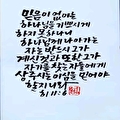 믿음이 없이는
하나님을 기쁘시게
하지 못하나니
하나님께 나아가는
자는 반드시 그가
계신 것과 또한 그가
자기를 찾는 자들에게
상 주시는 이심을 믿어야
할지니라
히 11:6